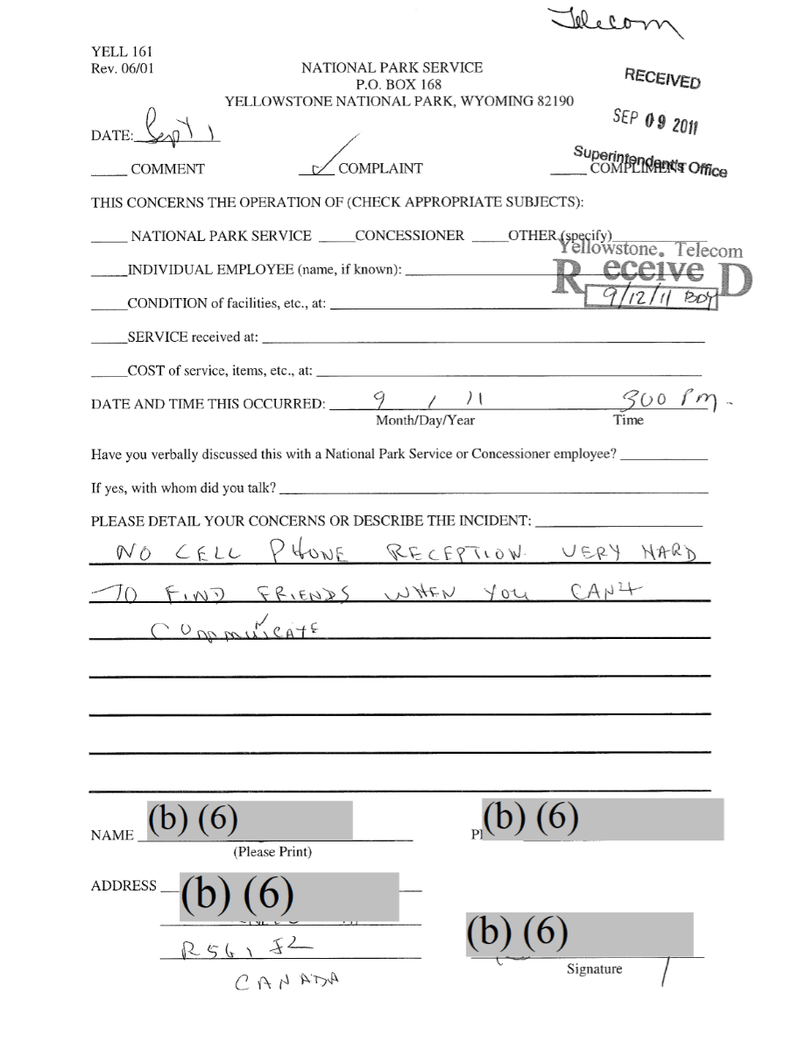 Telecom
YELL 161
Rev. 06/01
NATIONAL PARK SERVICE
P.O. BOX 168
YELLOWSTONE NATIONAL PARK, WYOMING 82190
RECEIVED
SEP 09 2011
Superintendent's Office
DATE: Sept 1
COMMENT ✓ COMPLAINT COMPLIMENT
THIS CONCERNS THE OPERATION OF (CHECK APPROPRIATE SUBJECTS):
NATIONAL PARK SERVICE CONCESSIONER OTHER (specify)
Yellowstone. Telecom
ReceiveD
9/12/11 BDY
INDIVIDUAL EMPLOYEE (name, if known):
CONDITION of facilities, etc., at:
SERVICE received at:
COST of service, items, etc., at:
DATE AND TIME THIS OCCURRED: 9 / 11 300 PM -
Month/Day/Year Time
Have you verbally discussed this with a National Park Service or Concessioner employee?
If yes, with whom did you talk?
PLEASE DETAIL YOUR CONCERNS OR DESCRIBE THE INCIDENT:
NO CELL PHONE RECEPTION. VERY HARD
TO FIND FRIENDS WHEN YOU CAN'T
COMMUNICATE
NAME (b) (6) (b) (6)
(Please Print)
ADDRESS (b) (6)
(b) (6)
Signature
CANADA